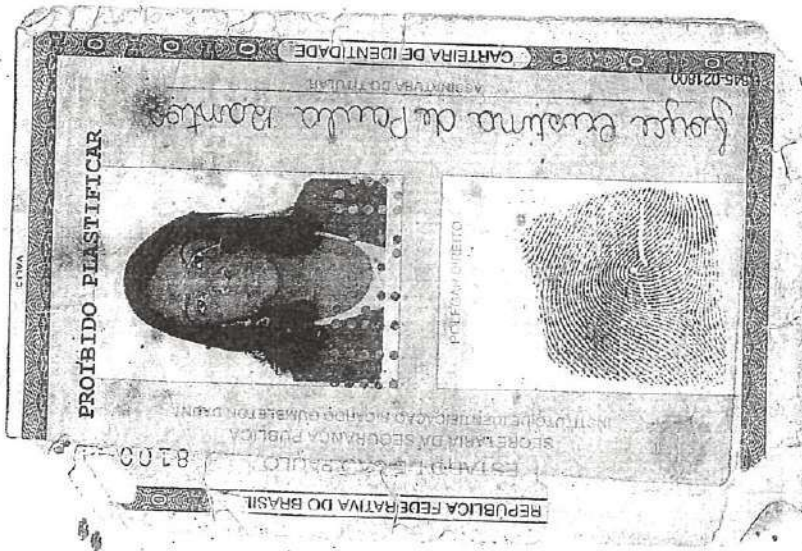 REPÚBLICA FEDERATIVA DO BRASIL
ESTADO DE SÃO PAULO
8100
SECRETARIA DA SEGURANÇA PÚBLICA
INSTITUTO DE IDENTIFICAÇÃO RICARDO GUMBLETON DAUNT
PROIBIDO PLASTIFICAR
POLEGAR DIREITO
Joyce Cristina de Paula
ASSINATURA DO TITULAR
CARTEIRA DE IDENTIDADE